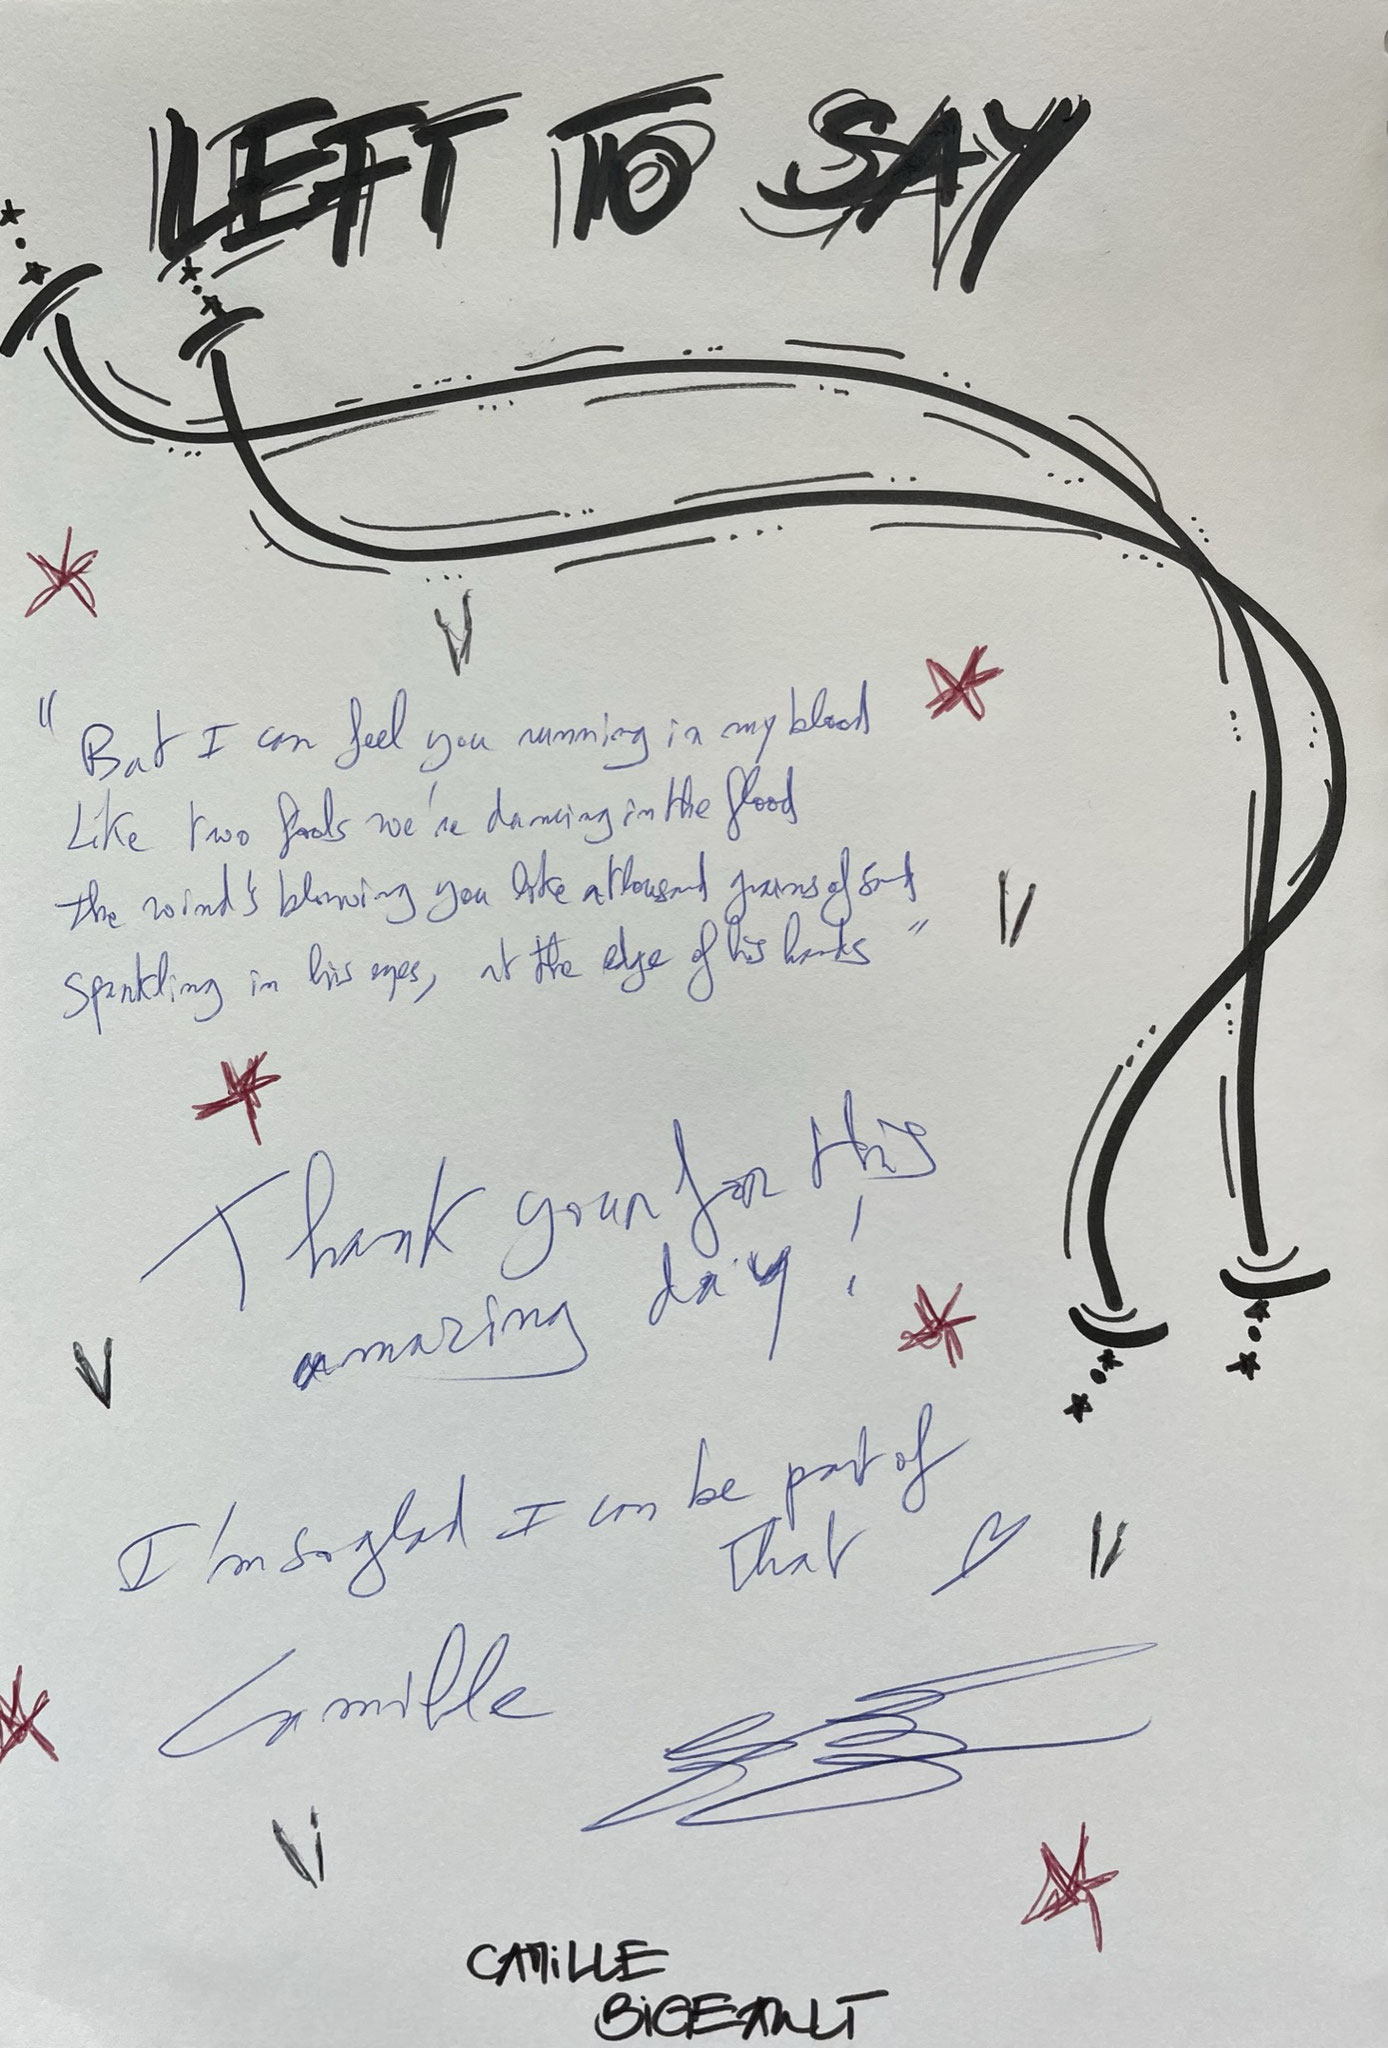 LEFT TO SAY
"But I can feel you running in my blood
Like two fools we're dancing in the flood
the wind's blowing you like a thousand grains of sand
sparkling in his eyes, at the edge of his hands"
Thank your for this
amazing day!
I'm so glad I can be part of
that
Camille
CAMiLLE
BiGEAULT